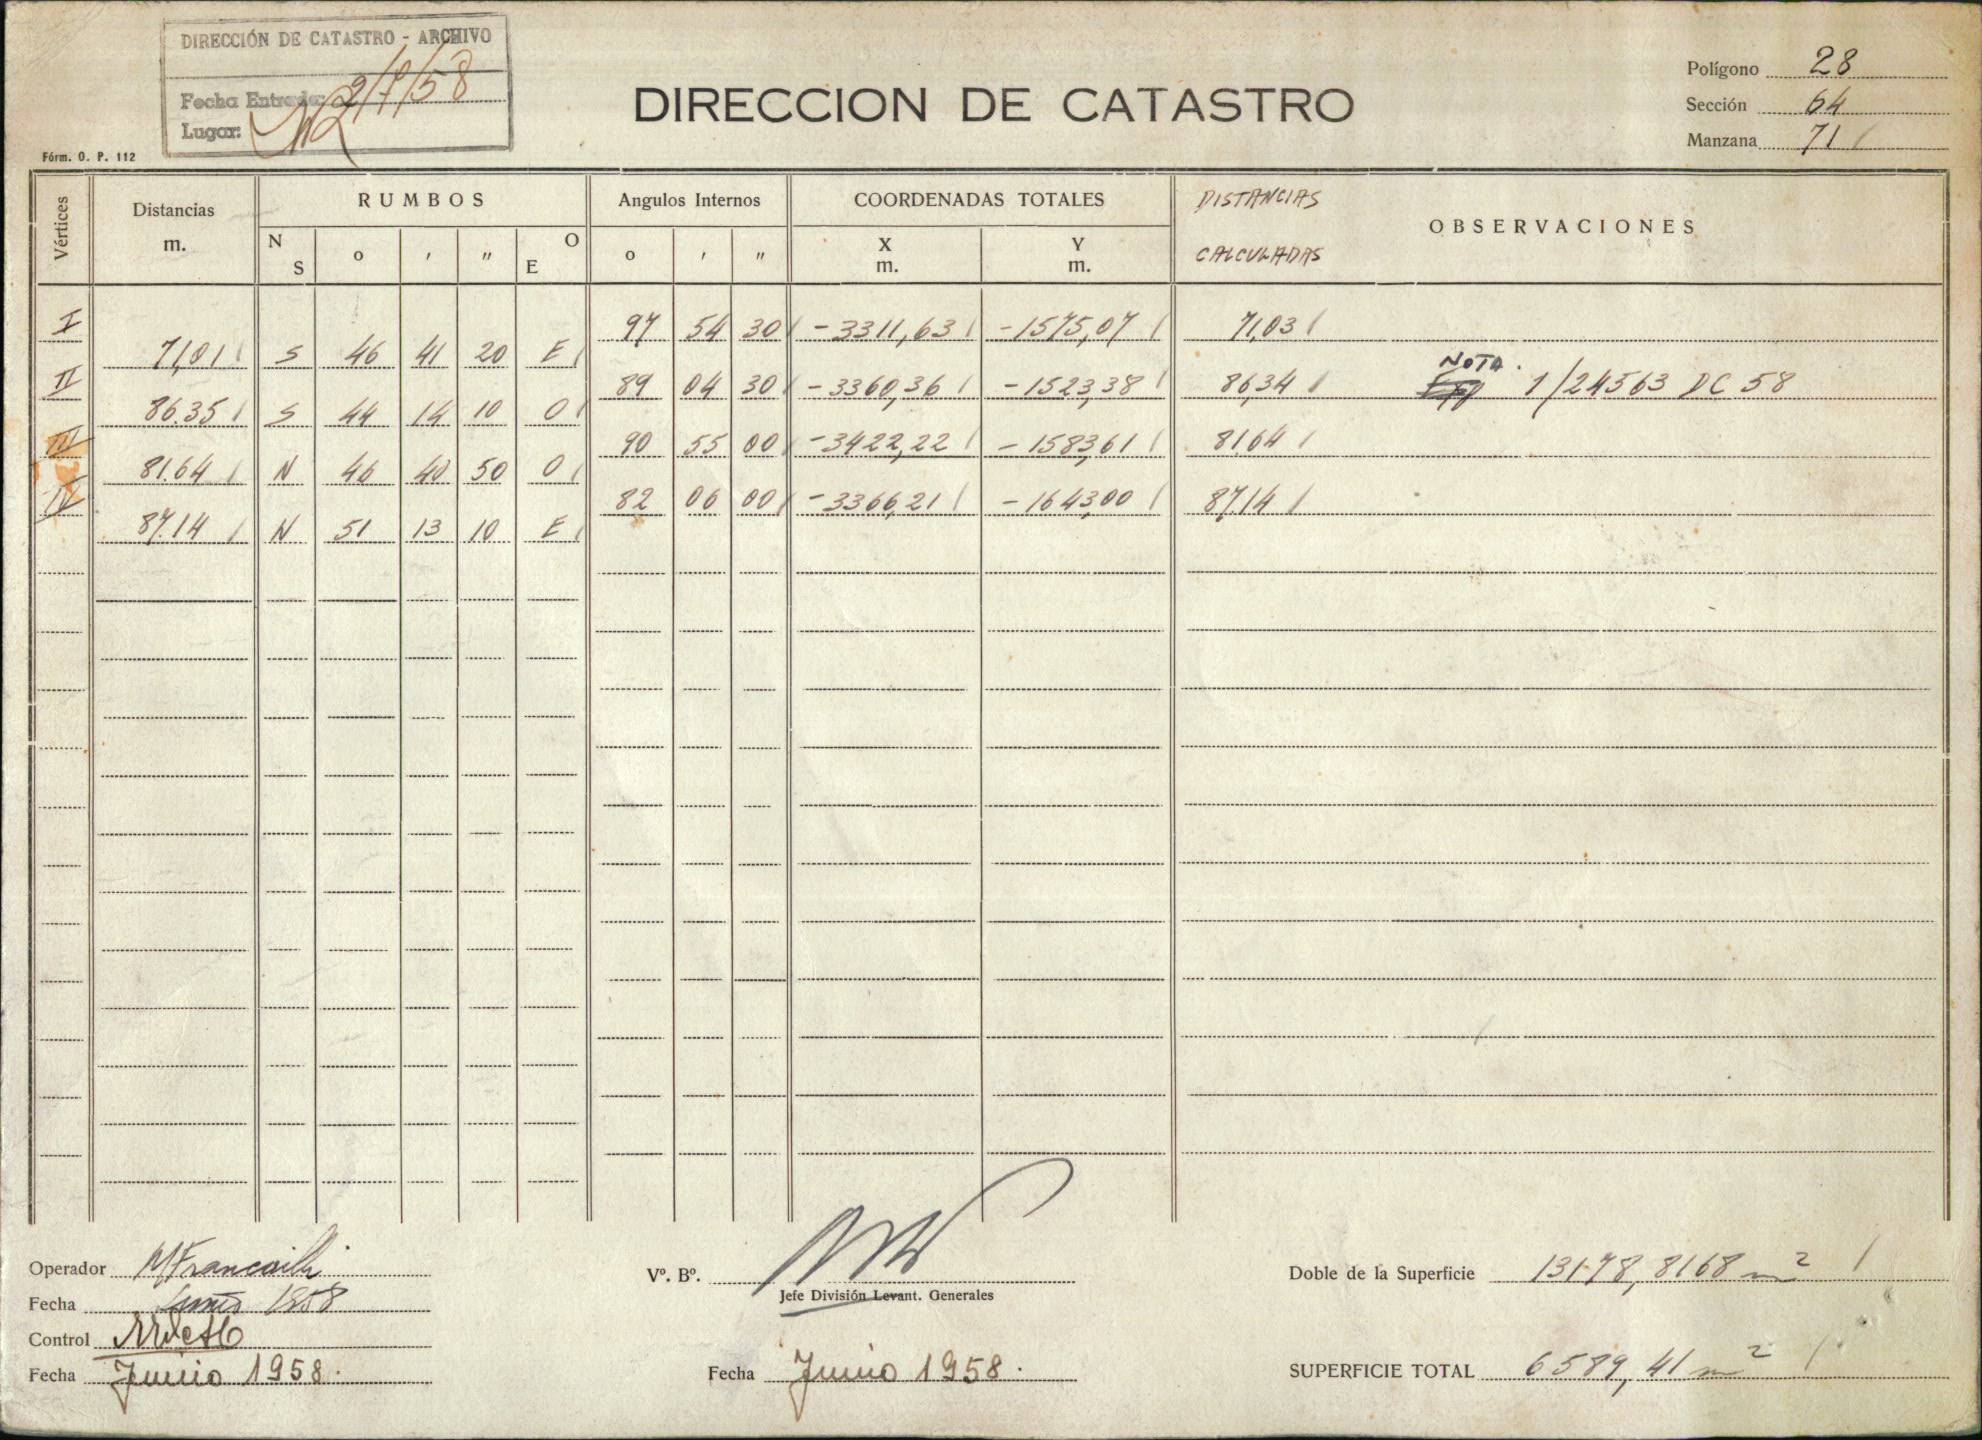 DIRECCIÓN DE CATASTRO - ARCHIVO
Fecha Entrada: 2/7/58
Lugar:
Fórm. O. P. 112
DIRECCION DE CATASTRO
Polígono 28
Sección 64
Manzana 71
Vértices Distancias m. RUMBOS Angulos Internos COORDENADAS TOTALES DISTANCIAS CALCULADAS OBSERVACIONES
N S o ' " O E o ' " X m. Y m.
I 97 54 30 -3311,63 -1575,07 71,03
71,01 S 46 41 20 E
II 89 04 30 -3360,36 -1523,38 86,34 NOTA. 1/24563 DC 58
86.35 S 44 14 10 O
III 90 55 00 -3422,22 -1583,61 81,64
81.64 N 46 40 50 O
IV 82 06 00 -3366,21 -1643,00 87,14
87.14 N 51 13 10 E
Operador
Fecha 1958
Control
Fecha Junio 1958.
Vº. Bº.
Jefe División Levant. Generales
Fecha Junio 1958.
Doble de la Superficie 13178,8168 m2
SUPERFICIE TOTAL 6589,41 m2